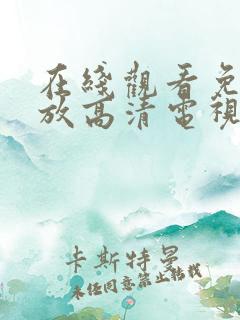 在綫觀看免
放高清電視
卡斯特曼
未经同意禁止转载